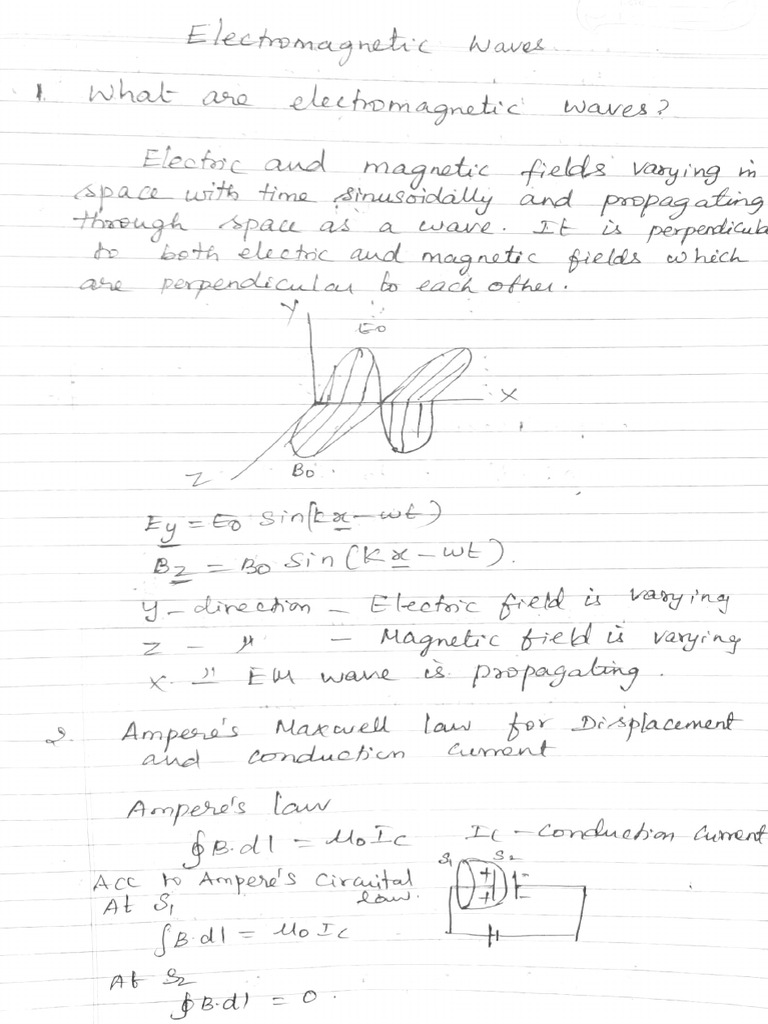 Electromagnetic Waves
1. What are electromagnetic waves?
Electric and magnetic fields varying in
space with time sinusoidally and propagating
through space as a wave. It is perpendicula
to both electric and magnetic fields which
are perpendicular to each other.
Y
E0
X
Z
B0
Ey = E0 Sin(kx - ωt)
Bz = B0 Sin (Kx - ωt).
Y - direction - Electric field is varying
Z - " - Magnetic field is varying
X - " EM wave is propagating.
2. Ampere's Maxwell law for Displacement
and conduction current
Ampere's law
∮B.dl = μ0 Ic Ic - Conduction Current
S1 S2
Acc to Ampere's Circuital
law.
At S1
∫B.dl = μ0 Ic
At S2
∮B.dl = 0.